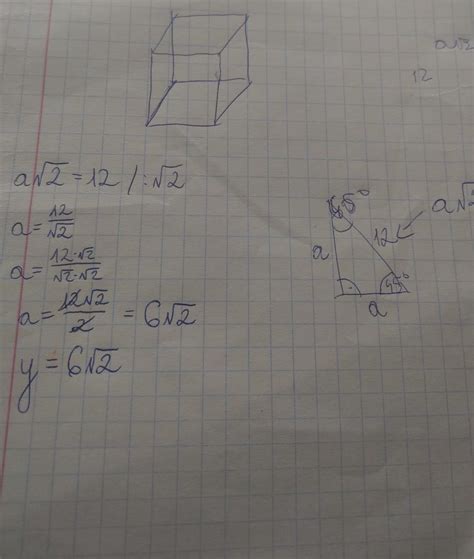 a√2
12
a√2 = 12 /:√2
a = 12/√2
a = 12·√2/√2·√2
a = 12√2/2 = 6√2
y = 6√2
45°
a√2
12
a
45°
a